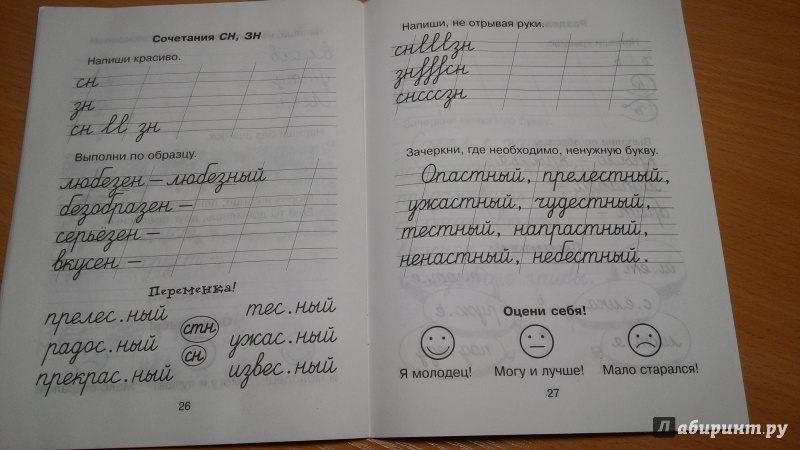 Сочетания СН, ЗН
Напиши красиво.
сн
зн
сн ll зн
Выполни по образцу.
любезен – любезный
безобразен –
серьёзен –
вкусен –
Переменка!
прелес.ный
тес.ный
стн
радос.ный
ужас.ный
сн
прекрас.ный
извес.ный
26
Напиши, не отрывая руки.
снlllзн
знſſſсн
снссззн
Зачеркни, где необходимо, ненужную букву.
Опастный, прелестный,
ужастный, чудестный,
тестный, напрастный,
ненастный, небестный.
Оцени себя!
Я молодец!
Могу и лучше!
Мало старался!
27
Лабиринт.ру